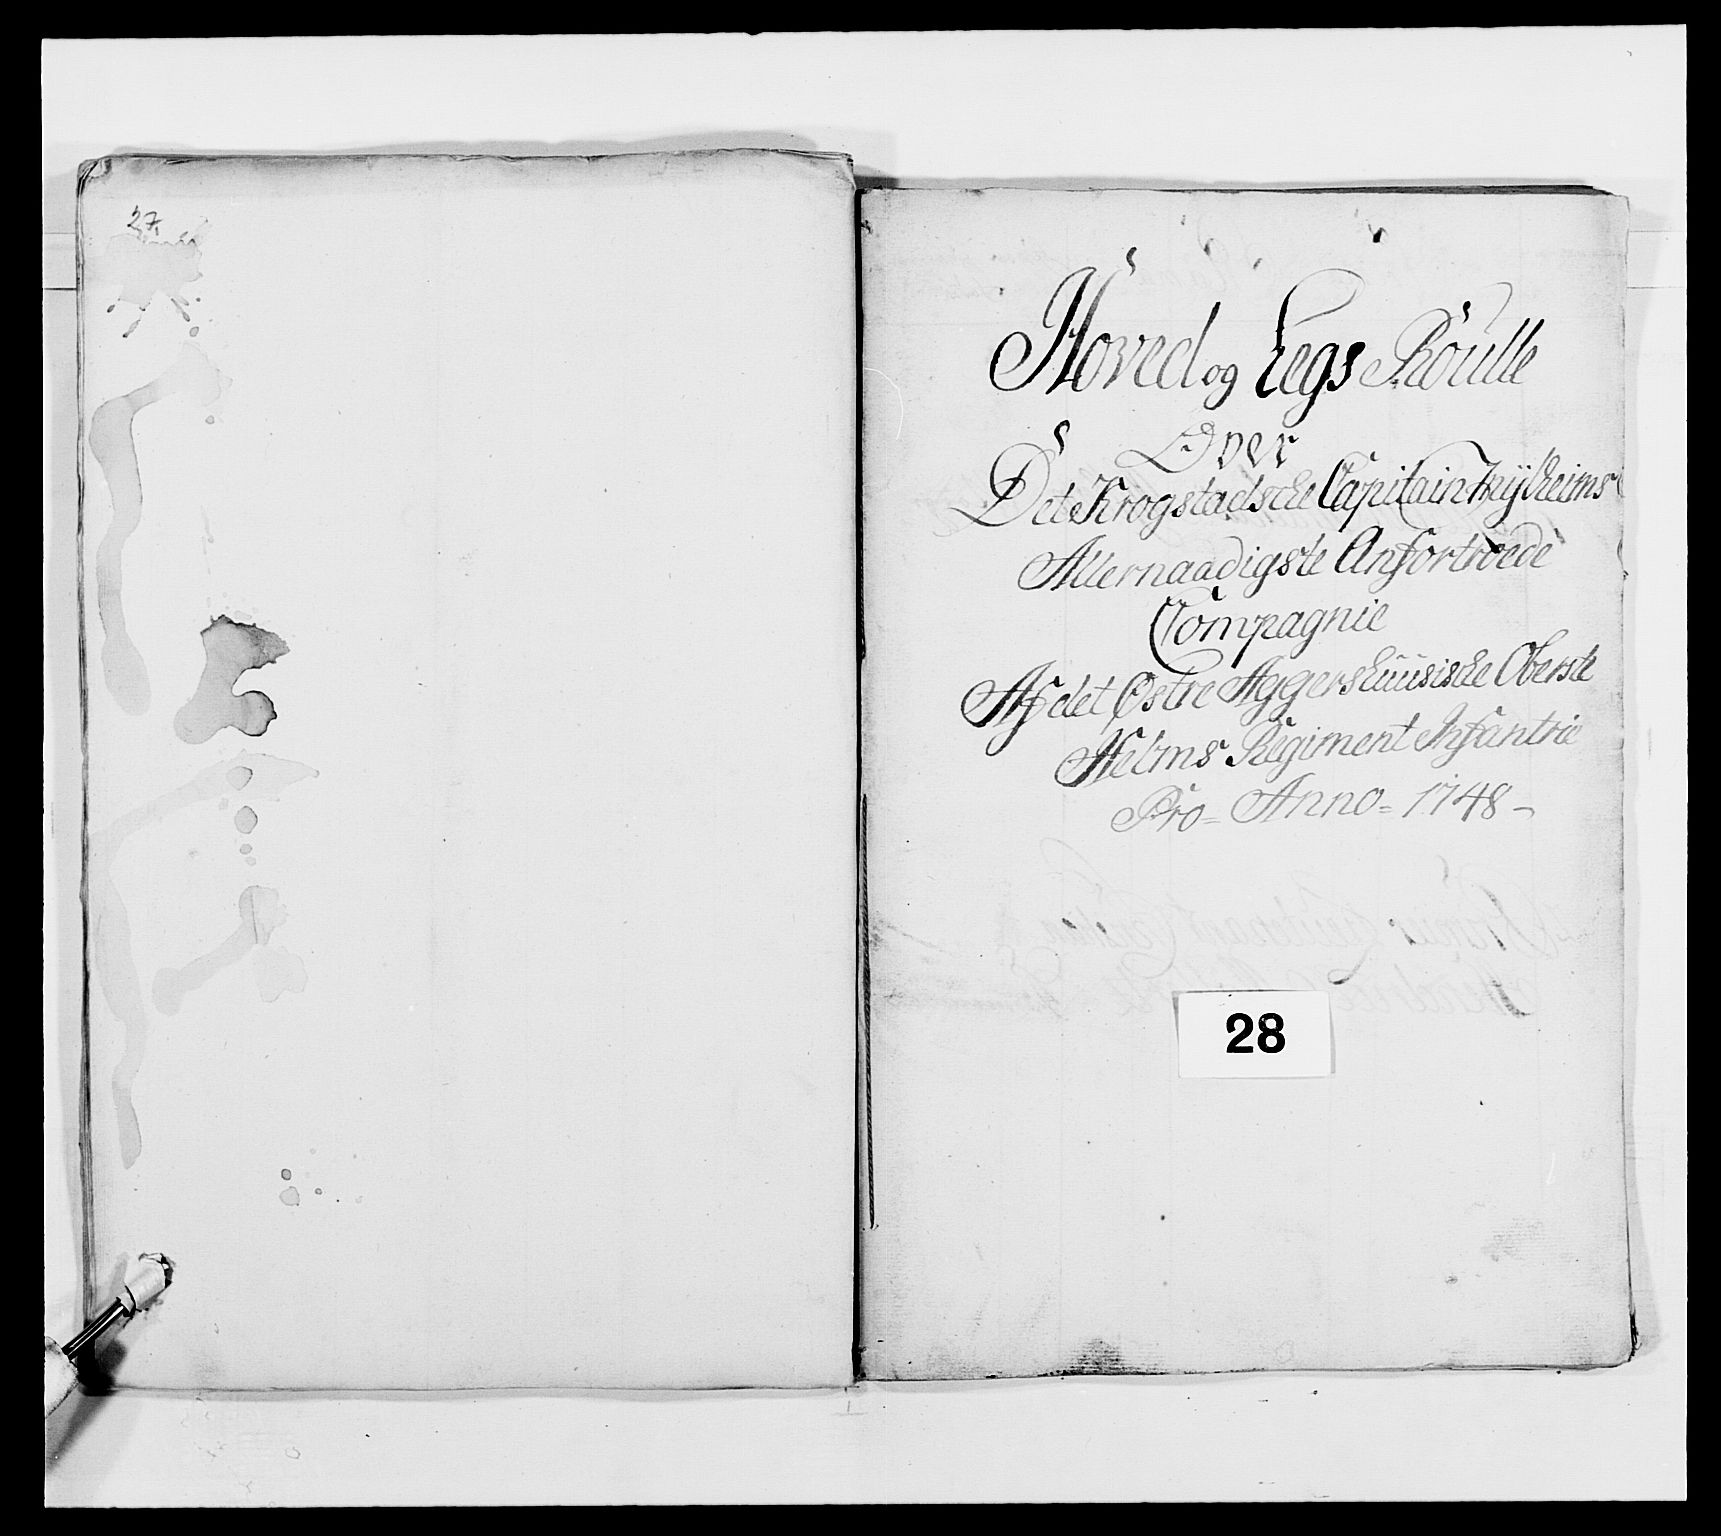 27.
Hoved og Legs Roulle
Over
Det Krogstadsche Capitain
Allernaadigste Anfortroede
Compagnie
Af det Østre Aggershuusische Oberste
Helms Regiment Infanterie
Pro = Anno = 1748 -
28